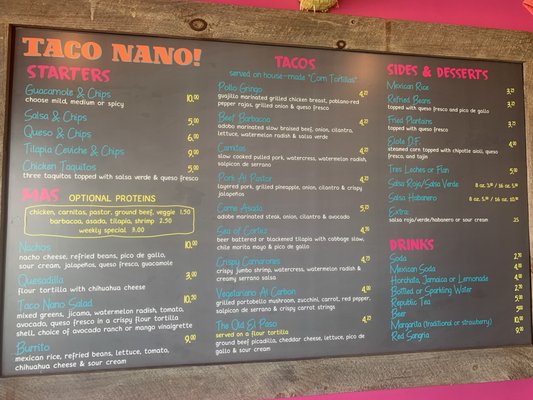 TACO NANO!
STARTERS
Guacamole & Chips 10.00
choose mild, medium or spicy
Salsa & Chips 5.00
Queso & Chips 6.00
Tilapia Ceviche & Chips 9.00
Chicken Taquitos 5.00
three taquitos topped with salsa verde & queso fresco
MAS OPTIONAL PROTEINS
chicken, carnitas, pastor, ground beef, veggie 1.50
barbacoa, asada, tilapia, shrimp 2.50
weekly special 3.00
Nachos 10.00
nacho cheese, refried beans, pico de gallo,
sour cream, jalapeños, queso fresco, guacamole
Quesadilla 3.00
flour tortilla with chihuahua cheese
Taco Nano Salad 10.20
mixed greens, jicama, watermelon radish, tomato,
avocado, queso fresco in a crispy flour tortilla
shell, choice of avocado ranch or mango vinaigrette
Burrito 9.00
mexican rice, refried beans, lettuce, tomato,
chihuahua cheese & sour cream
TACOS
served on house-made "Corn Tortillas"
Pollo Gringo 4.25
guajillo marinated grilled chicken breast, poblano-red
pepper rajas, grilled onion & queso fresco
Beef Barbacoa
adobo marinated slow braised beef, onion, cilantro,
lettuce, watermelon radish & salsa verde
Carnitas
slow cooked pulled pork, watercress, watermelon radish,
salpicon de serrano
Pork Al Pastor
layered pork, grilled pineapple, onion, cilantro & crispy
jalapeños
Carne Asada 5.25
adobo marinated steak, onion, cilantro & avocado
Sea of Cortez
beer battered or blackened tilapia with cabbage slaw,
chile morita mayo & pico de gallo
Crispy Camarones
crispy jumbo shrimp, watercress, watermelon radish &
creamy serrano salsa
Vegetariano Al Carbon 4.00
grilled portobello mushroom, zucchini, carrot, red pepper,
salpicon de serrano & crispy carrot strings
The Old El Paso 4.25
served on a flour tortilla
ground beef picadillo, cheddar cheese, lettuce, pico de
gallo & sour cream
SIDES & DESSERTS
Mexican Rice 3.25
Refried Beans
topped with queso fresco and pico de gallo
Fried Plantains
topped with queso fresco
Elote D.F. 4.00
steamed corn topped with chipotle aioli, queso
fresco, and tajin
Tres Leches or Flan 5.00
Salsa Roja/Salsa Verde 8 oz. 16 oz.
Salsa Habanero 8 oz. 16 oz.
Extra: .25
salsa roja/verde/habanero or sour cream
DRINKS
Soda
Mexican Soda
Horchata, Jamaica or Lemonade
Bottled or Sparkling Water
Republic Tea
Beer
Margarita (traditional or strawberry) 10.00
Red Sangria 9.00